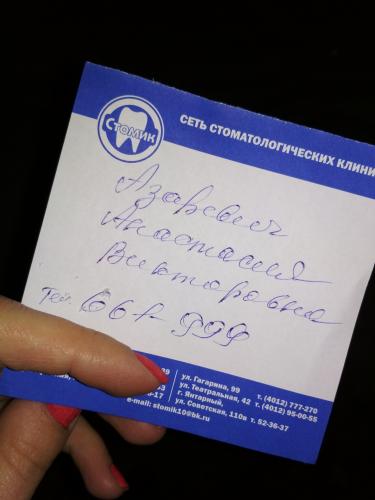 СТОМИК
СЕТЬ СТОМАТОЛОГИЧЕСКИХ КЛИНИ
Азаревич
Анастасия
Викторовна
Тел. 661-999
ул. Гагарина, 99 т. (4012) 777-270
ул. Театральная, 42 т. (4012) 95-00-55
г. Янтарный,
ул. Советская, 110в т. 52-36-37
e-mail: stomik10@bk.ru